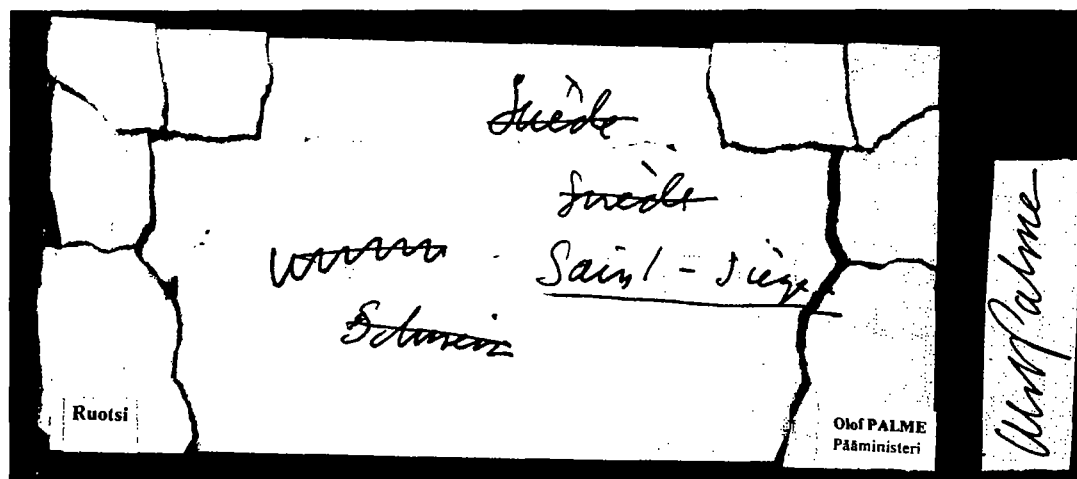 Suède
Suède
Saint-Siège
Schweiz
Ruotsi
Olof PALME
Pääministeri
Olof Palme